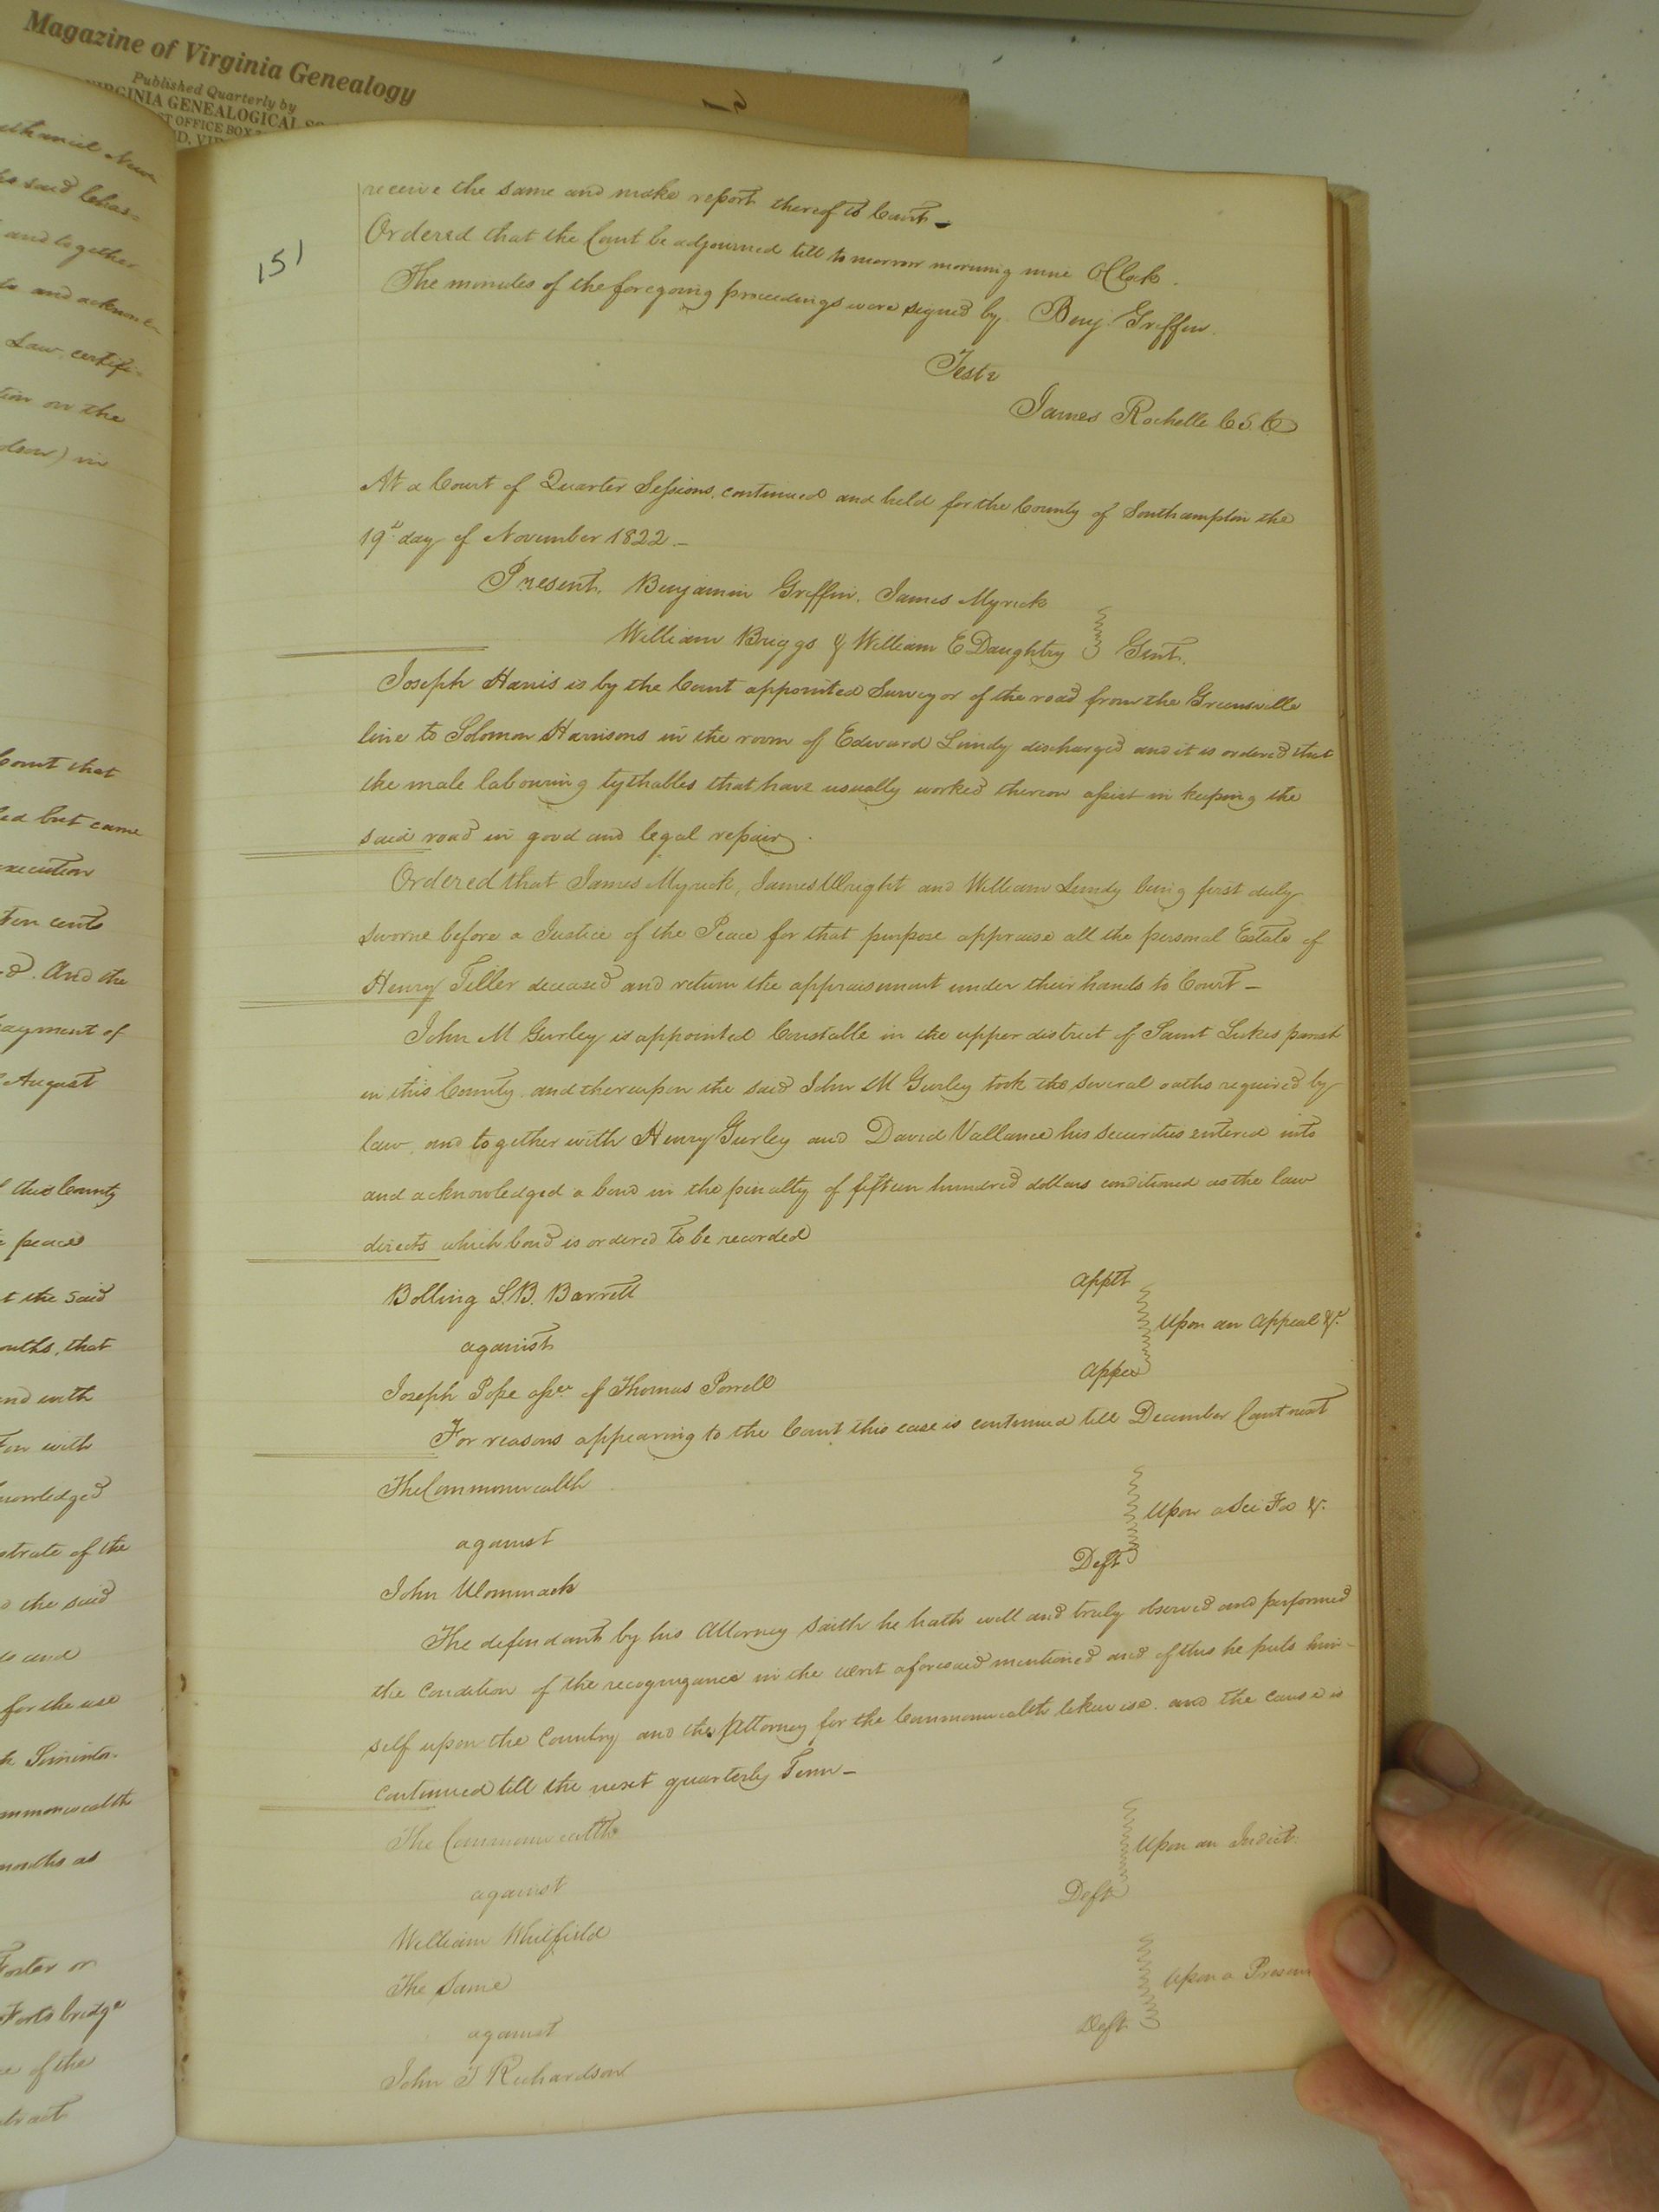 Magazine of Virginia Genealogy
Published Quarterly by
VIRGINIA GENEALOGICAL
OFFICE BOX
said
and together
to and
Law, certifi-
tion on the
in
Court that
but came
execution
Ten cents
And the
payment of
August
this County
peace
the said
that
and with
with
of the
the said
and
for the use
as
or
bridge
of the
151
receive the same and make report thereof to Court -
Ordered that the Court be adjourned till tomorrow morning nine OClock.
The minutes of the foregoing proceedings were signed by Benj. Griffin.
Teste
James Rochelle C S C
At a Court of Quarter Sessions, continued and held for the County of Southampton the
19th day of November 1822 -
Present, Benjamin Griffin, James Myrick
William Briggs & William E Daughtry Gent.
Joseph Harris is by the Court appointed Surveyor of the road from the Greensville
line to Solomon Harrisons in the room of Edward Lundy discharged and it is ordered that
the male labouring tythables that have usually worked thereon assist in keeping the
said road in good and legal repair.
Ordered that James Myrick, James Wright and William Lundy being first duly
sworne before a Justice of the Peace for that purpose appraise all the personal Estate of
Henry Tiller deceased and return the appraisement under their hands to Court -
John M Gurley is appointed Constable in the upper district of Saint Lukes parish
in this County and thereupon the said John M Gurley took the several oaths required by
law, and together with Henry Gurley and David Vallance his Securities entered into
and acknowledged a bond in the pinalty of fifteen hundred dollars conditioned as the law
directs which bond is ordered to be recorded
Bolling S.B. Barrett Applt
against Upon an Appeal &c.
Joseph Pope assee of Thomas Powell Appee
For reasons appearing to the Court this case is continued till December Court next
The Commonwealth
against Upon a Sci Fa &c.
John Wommack Deft
The defendant by his Attorney saith he hath well and truly observed and performed
the condition of the recognizance in the writ aforesaid mentioned and of this he puts him-
self upon the Country and the Attorney for the Commonwealth likewise. and the cause is
continued till the next quarterly Term -
The Commonwealth
against Upon an Indict:
William Whitfield Deft
The Same
against Upon a Presen
John T Richardson Deft